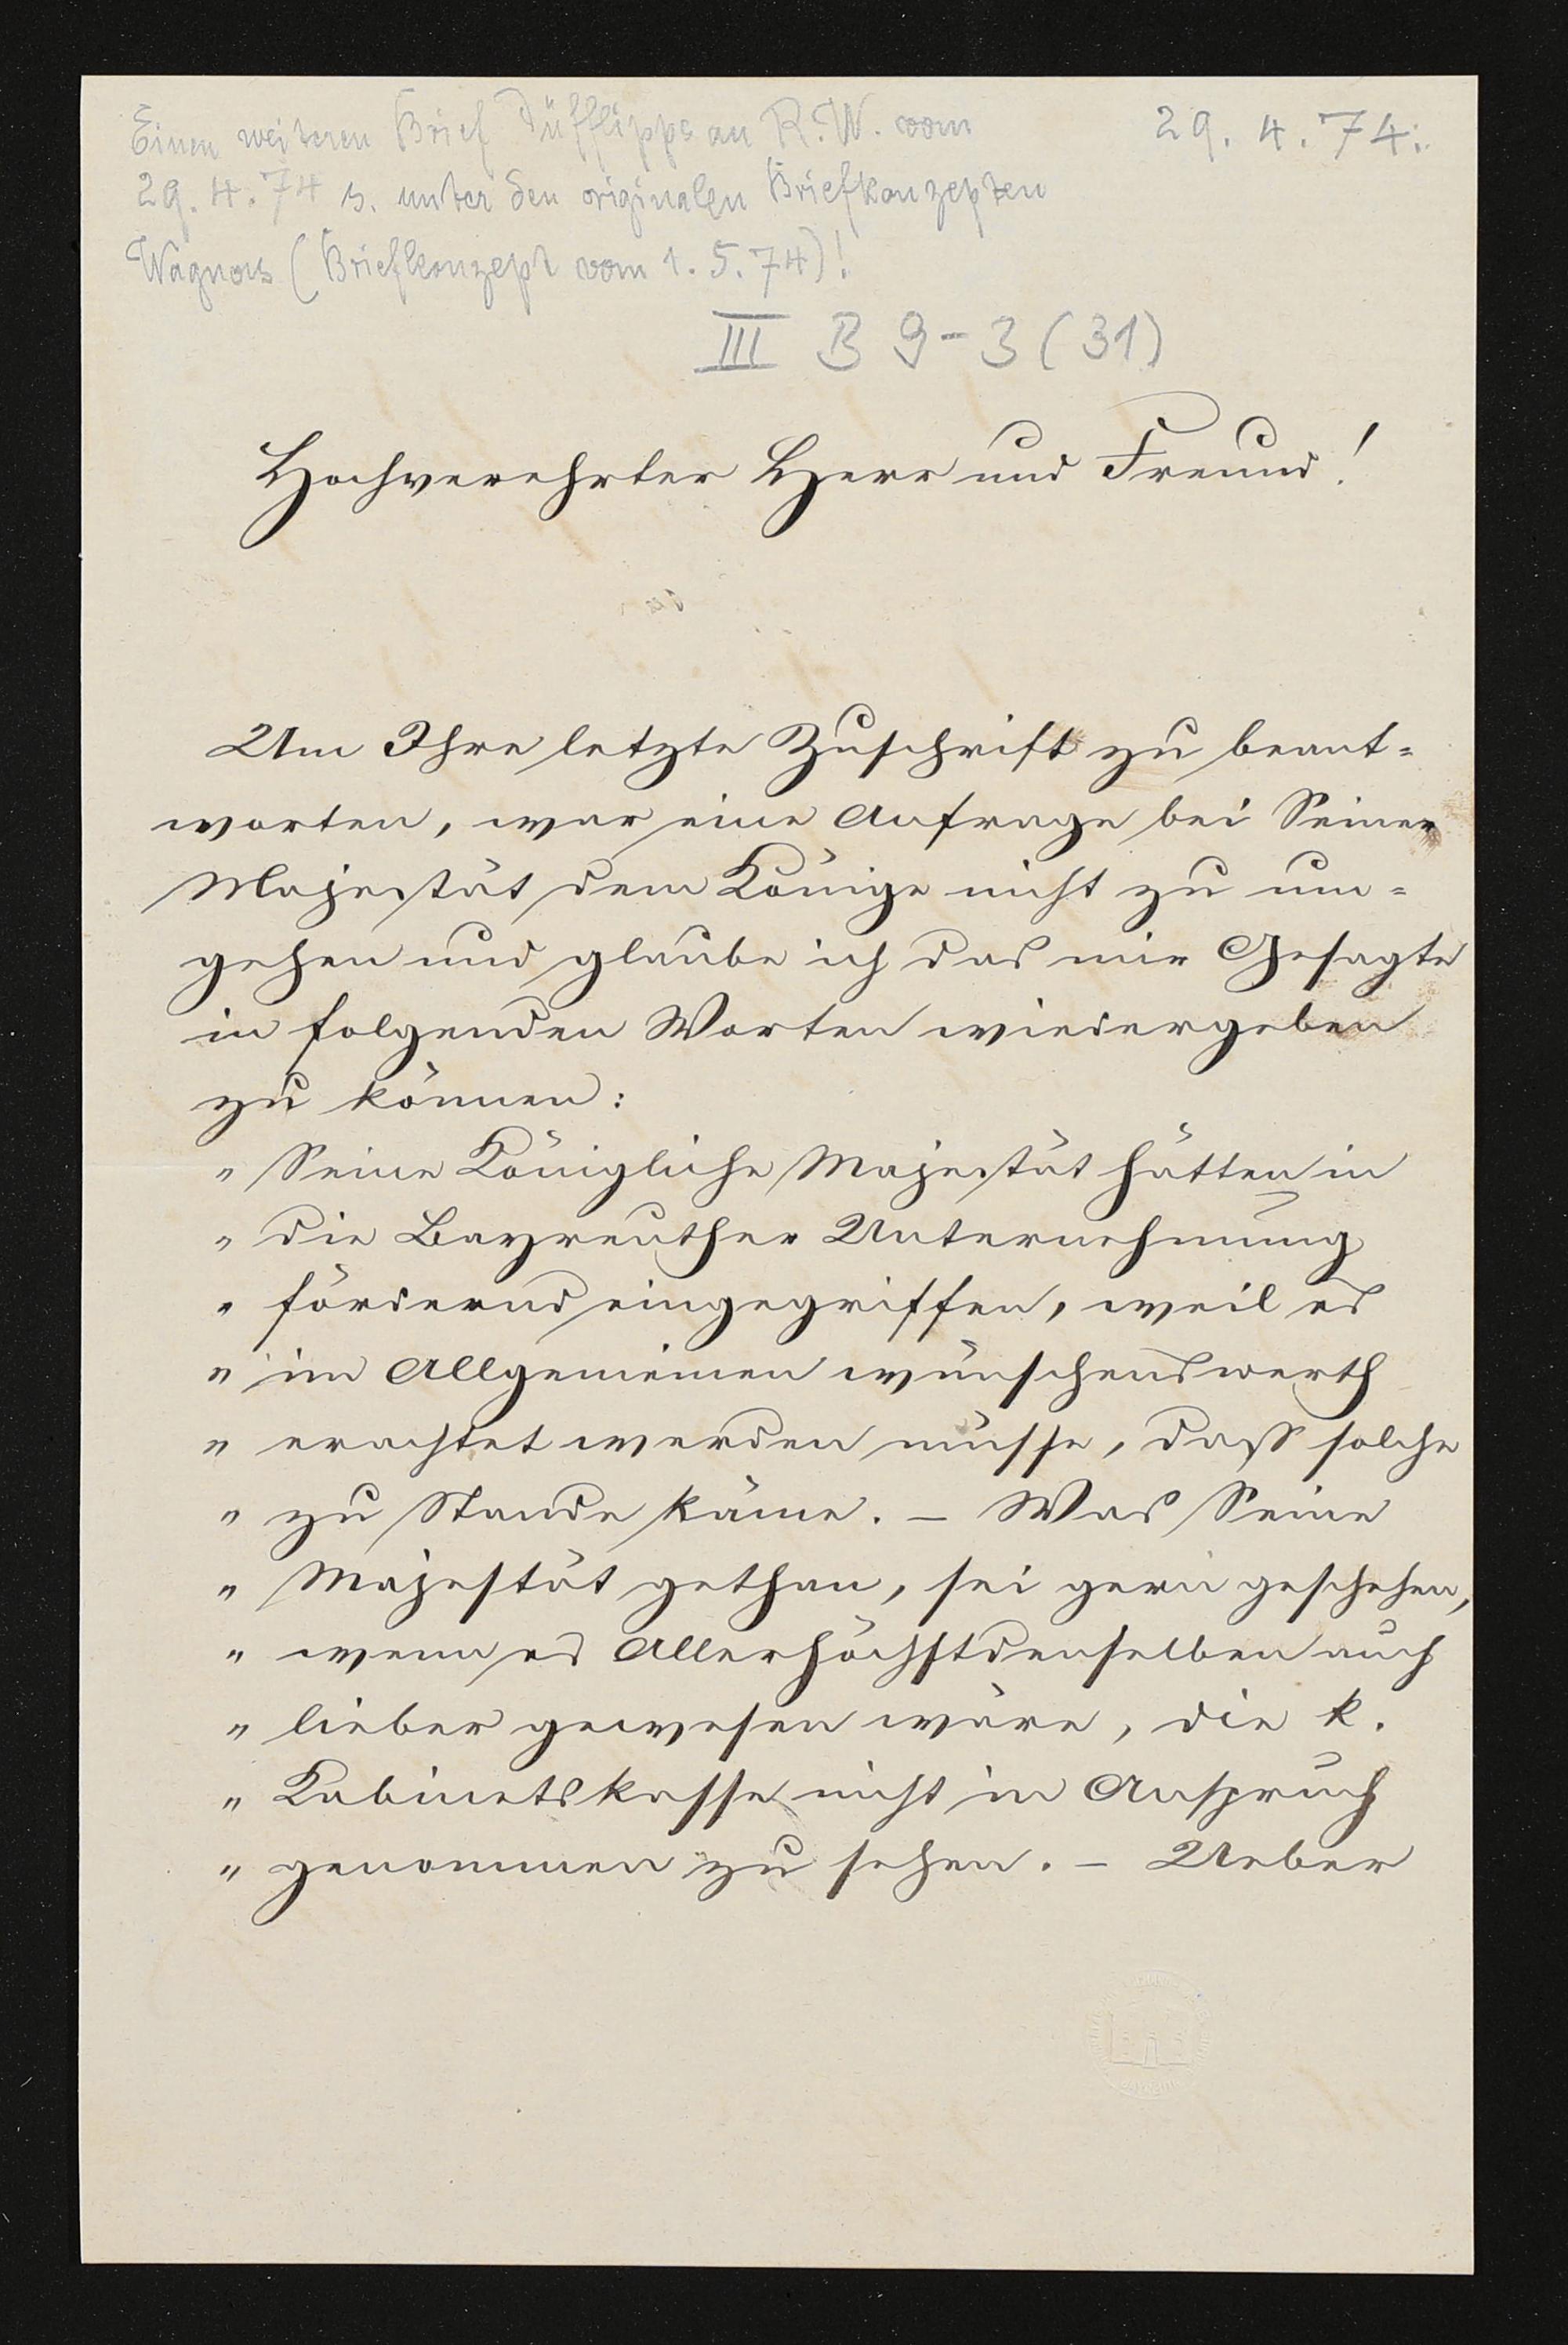 Einen weiteren Brief Düfflipps an R. W. vom
29. 4. 74 s. unter den originalen Briefkonzepten
Wagners (Briefkonzept vom 1. 5. 74)!
29. 4. 74.
III B 9-3 (31)
Hochverehrter Herr und Freund!
Um Ihre letzte Zuschrift zu beant-
worten, war eine Anfrage bei Seiner
Majestät dem Könige nicht zu um-
gehen und glaube ich das mir Gesagte
in folgenden Worten wiedergeben
zu können:
„ Seine Königliche Majestät hätten in
„ die Bayreuther Unternehmung
„ fördernd eingegriffen, weil es
„ im Allgemeinen wünschenswerth
„ erachtet werden müsse, daß solche
„ zu Stande käme. – Was Seine
„ Majestät gethan, sei gern geschehen,
„ wenn es Allerhöchstdenselben auch
„ lieber gewesen wäre, die k.
„ Kabinetskasse nicht in Anspruch
„ genommen zu sehen. – Ueber